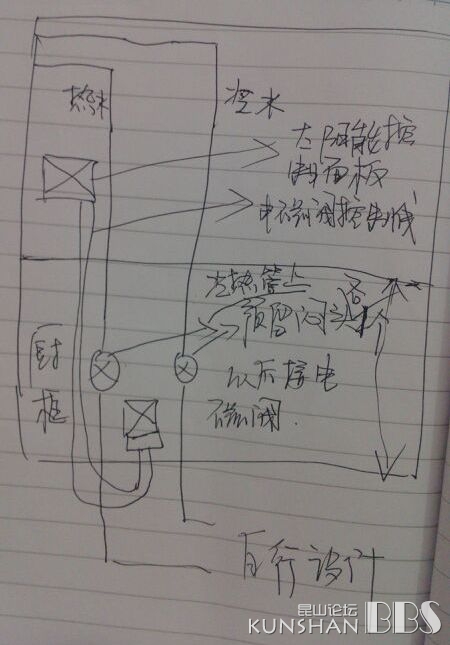 热水
冷水
太阳能控
制面板
电磁阀控制线
冷热管上
预留阀门
以后接电
磁阀.
自行设计
昆山论坛
KUNSHAN BBS